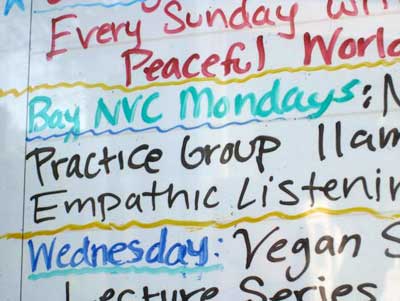 Every Sunday with
Peaceful World
Bay NVC Mondays:
Practice Group 11am
Empathic Listenin
Wednesday: Vegan S
Lecture Series